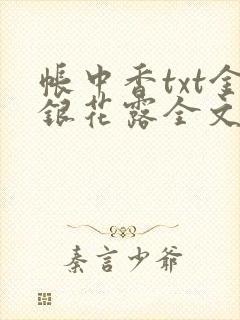 帐中香txt金
银花露全文
秦言少爷